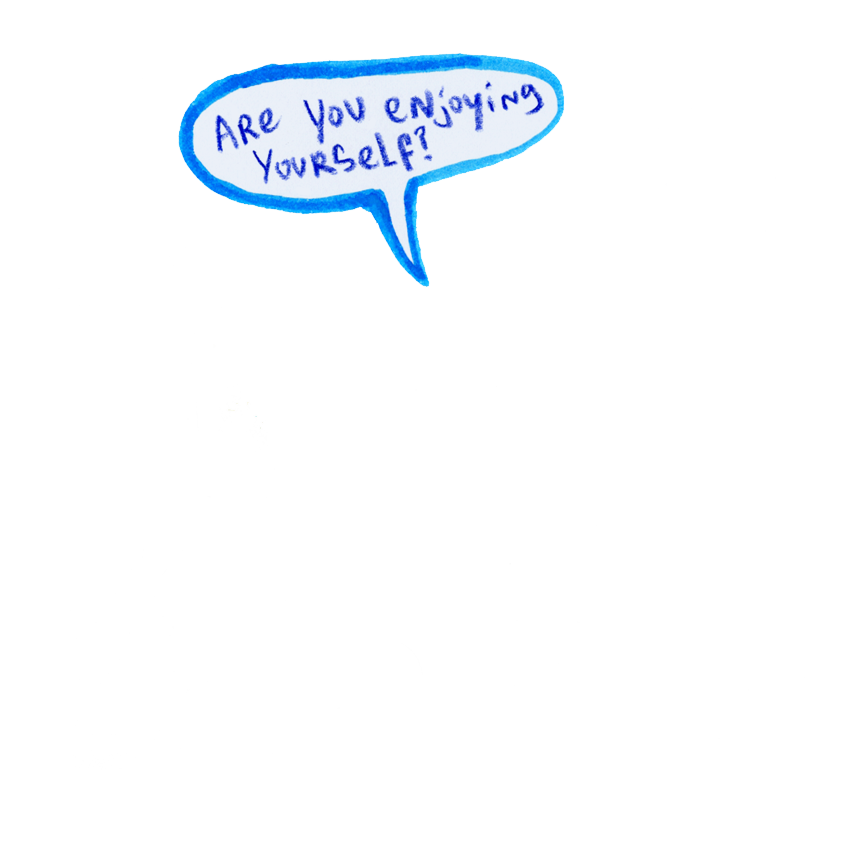 Are you enjoying
yourself?